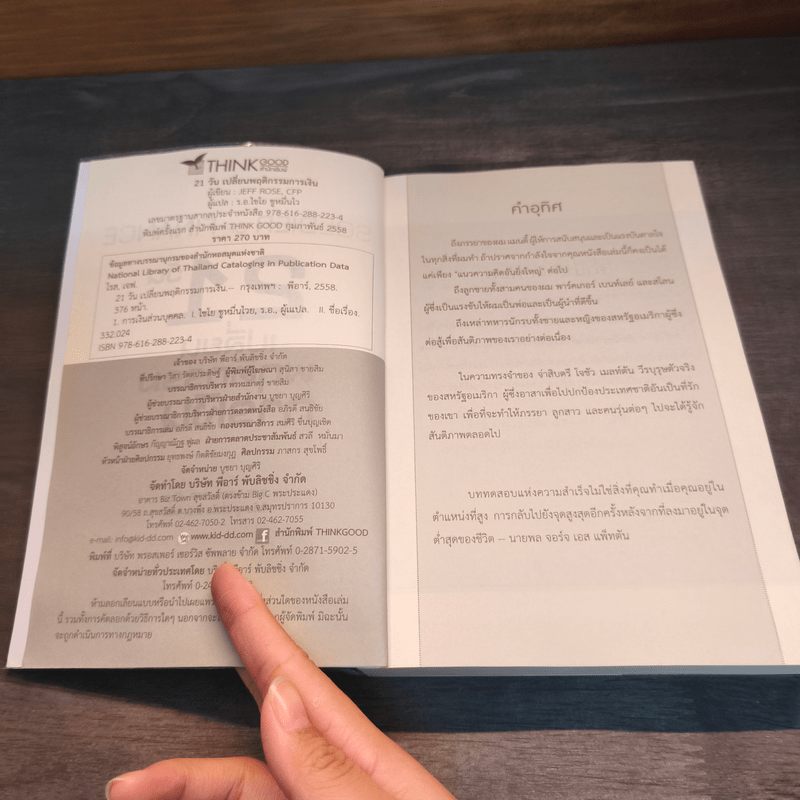 THINK GOOD
สำนักพิมพ์
21 วัน เปลี่ยนพฤติกรรมการเงิน
ผู้เขียน : JEFF ROSE, CFP
ผู้แปล : ร.อ.ไชโย ชูหมื่นไว
เลขมาตรฐานสากลประจำหนังสือ 978-616-288-223-4
พิมพ์ครั้งแรก สำนักพิมพ์ THINK GOOD กุมภาพันธ์ 2558
ราคา 270 บาท
ข้อมูลทางบรรณานุกรมของสำนักหอสมุดแห่งชาติ
National Library of Thailand Cataloging in Publication Data
โรส, เจฟ.
21 วัน เปลี่ยนพฤติกรรมการเงิน -- กรุงเทพฯ : พีอาร์, 2558.
376 หน้า.
1. การเงินส่วนบุคคล. I. ไชโย ชูหมื่นไวย, ร.อ., ผู้แปล. II. ชื่อเรื่อง.
332.024
ISBN 978-616-288-223-4
เจ้าของ บริษัท พีอาร์ พับลิชชิ่ง จำกัด
ที่ปรึกษา วิสา รัตตประดิษฐ์ ผู้พิมพ์ผู้โฆษณา สุนิสา ชายสิม
บรรณาธิการบริหาร พรหมยาตร์ ชายสิม
ผู้ช่วยบรรณาธิการบริหารฝ่ายสำนักงาน บุชยา บุญศิริ
ผู้ช่วยบรรณาธิการบริหารฝ่ายการตลาดหนังสือ อภิรดี สนธิชัย
บรรณาธิการเล่ม อภิรดี สนธิชัย กองบรรณาธิการ สมศิริ ชื่นบุญเชิด
พิสูจน์อักษร กัญญาณัฏฐ ฟูผล ฝ่ายการตลาดประชาสัมพันธ์ สวลี หมันมา
หัวหน้าฝ่ายศิลปกรรม ยุทธพงษ์ กิตติชัยมงกุฎ ศิลปกรรม ภาสกร สุขโพธิ์
จัดจำหน่าย บุชยา บุญศิริ
จัดทำโดย บริษัท พีอาร์ พับลิชชิ่ง จำกัด
อาคาร Biz Town สุขสวัสดิ์ (ตรงข้าม Big C พระประแดง)
90/58 ถ.สุขสวัสดิ์ ต.บางพึ่ง อ.พระประแดง จ.สมุทรปราการ 10130
โทรศัพท์ 02-462-7050-2 โทรสาร 02-462-7055
e-mail: info@kid-dd.com www.kid-dd.com สำนักพิมพ์ THINKGOOD
พิมพ์ที่ บริษัท พรอสเพอร์ เซอร์วิส ซัพพลาย จำกัด โทรศัพท์ 0-2871-5902-5
จัดจำหน่ายทั่วประเทศโดย บริษัท พีอาร์ พับลิชชิ่ง จำกัด
โทรศัพท์ 0-24
ห้ามลอกเลียนแบบหรือนำไปเผยแพร่ ส่วนใดของหนังสือเล่ม
นี้ รวมทั้งการคัดลอกด้วยวิธีการใดๆ นอกจากจะ ผู้จัดพิมพ์ มิฉะนั้น
จะถูกดำเนินการทางกฎหมาย
คำอุทิศ
ถึงภรรยาของผม แมนดี้ ผู้ให้การสนับสนุนและเป็นแรงบันดาลใจ
ในทุกสิ่งที่ผมทำ ถ้าปราศจากกำลังใจจากคุณหนังสือเล่มนี้ก็คงเป็นได้
แค่เพียง “แนวความคิดอันยิ่งใหญ่” ต่อไป
ถึงลูกชายทั้งสามคนของผม พาร์คเกอร์ เบนท์เลย์ และสโลน
ผู้ซึ่งเป็นแรงขับให้ผมเป็นพ่อและเป็นผู้นำที่ดีขึ้น
ถึงเหล่าทหารนักรบทั้งชายและหญิงของสหรัฐอเมริกาผู้ซึ่ง
ต่อสู้เพื่อสันติภาพของเราอย่างต่อเนื่อง
ในความทรงจำของ จ่าสิบตรี โจชัว เมลท์ตัน วีรบุรุษตัวจริง
ของสหรัฐอเมริกา ผู้ซึ่งอาสาเพื่อไปปกป้องประเทศชาติอันเป็นที่รัก
ของเขา เพื่อที่จะทำให้ภรรยา ลูกสาว และคนรุ่นต่อๆ ไปจะได้รู้จัก
สันติภาพตลอดไป
บททดสอบแห่งความสำเร็จไม่ใช่สิ่งที่คุณทำเมื่อคุณอยู่ใน
ตำแหน่งที่สูง การกลับไปยังจุดสูงสุดอีกครั้งหลังจากที่ลงมาอยู่ในจุด
ต่ำสุดของชีวิต -- นายพล จอร์จ เอส แพ็ทตัน